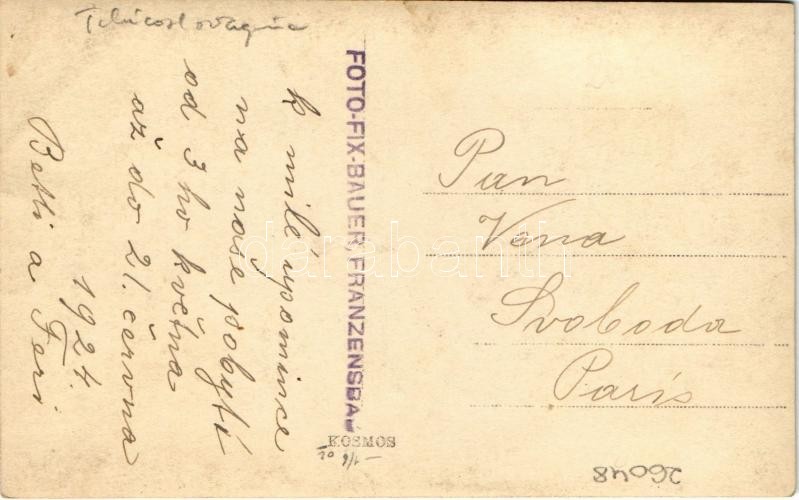 Tchécoslovaquie
K milé úpomince
na naše pobytí
od 3 ho května
až do 21. června
1924.
Betti a Feri
FOTO-FIX-BAUER, FRANZENSBAD
KOSMOS
Pan
Vena
Svoboda
Paris
26048
darabanth